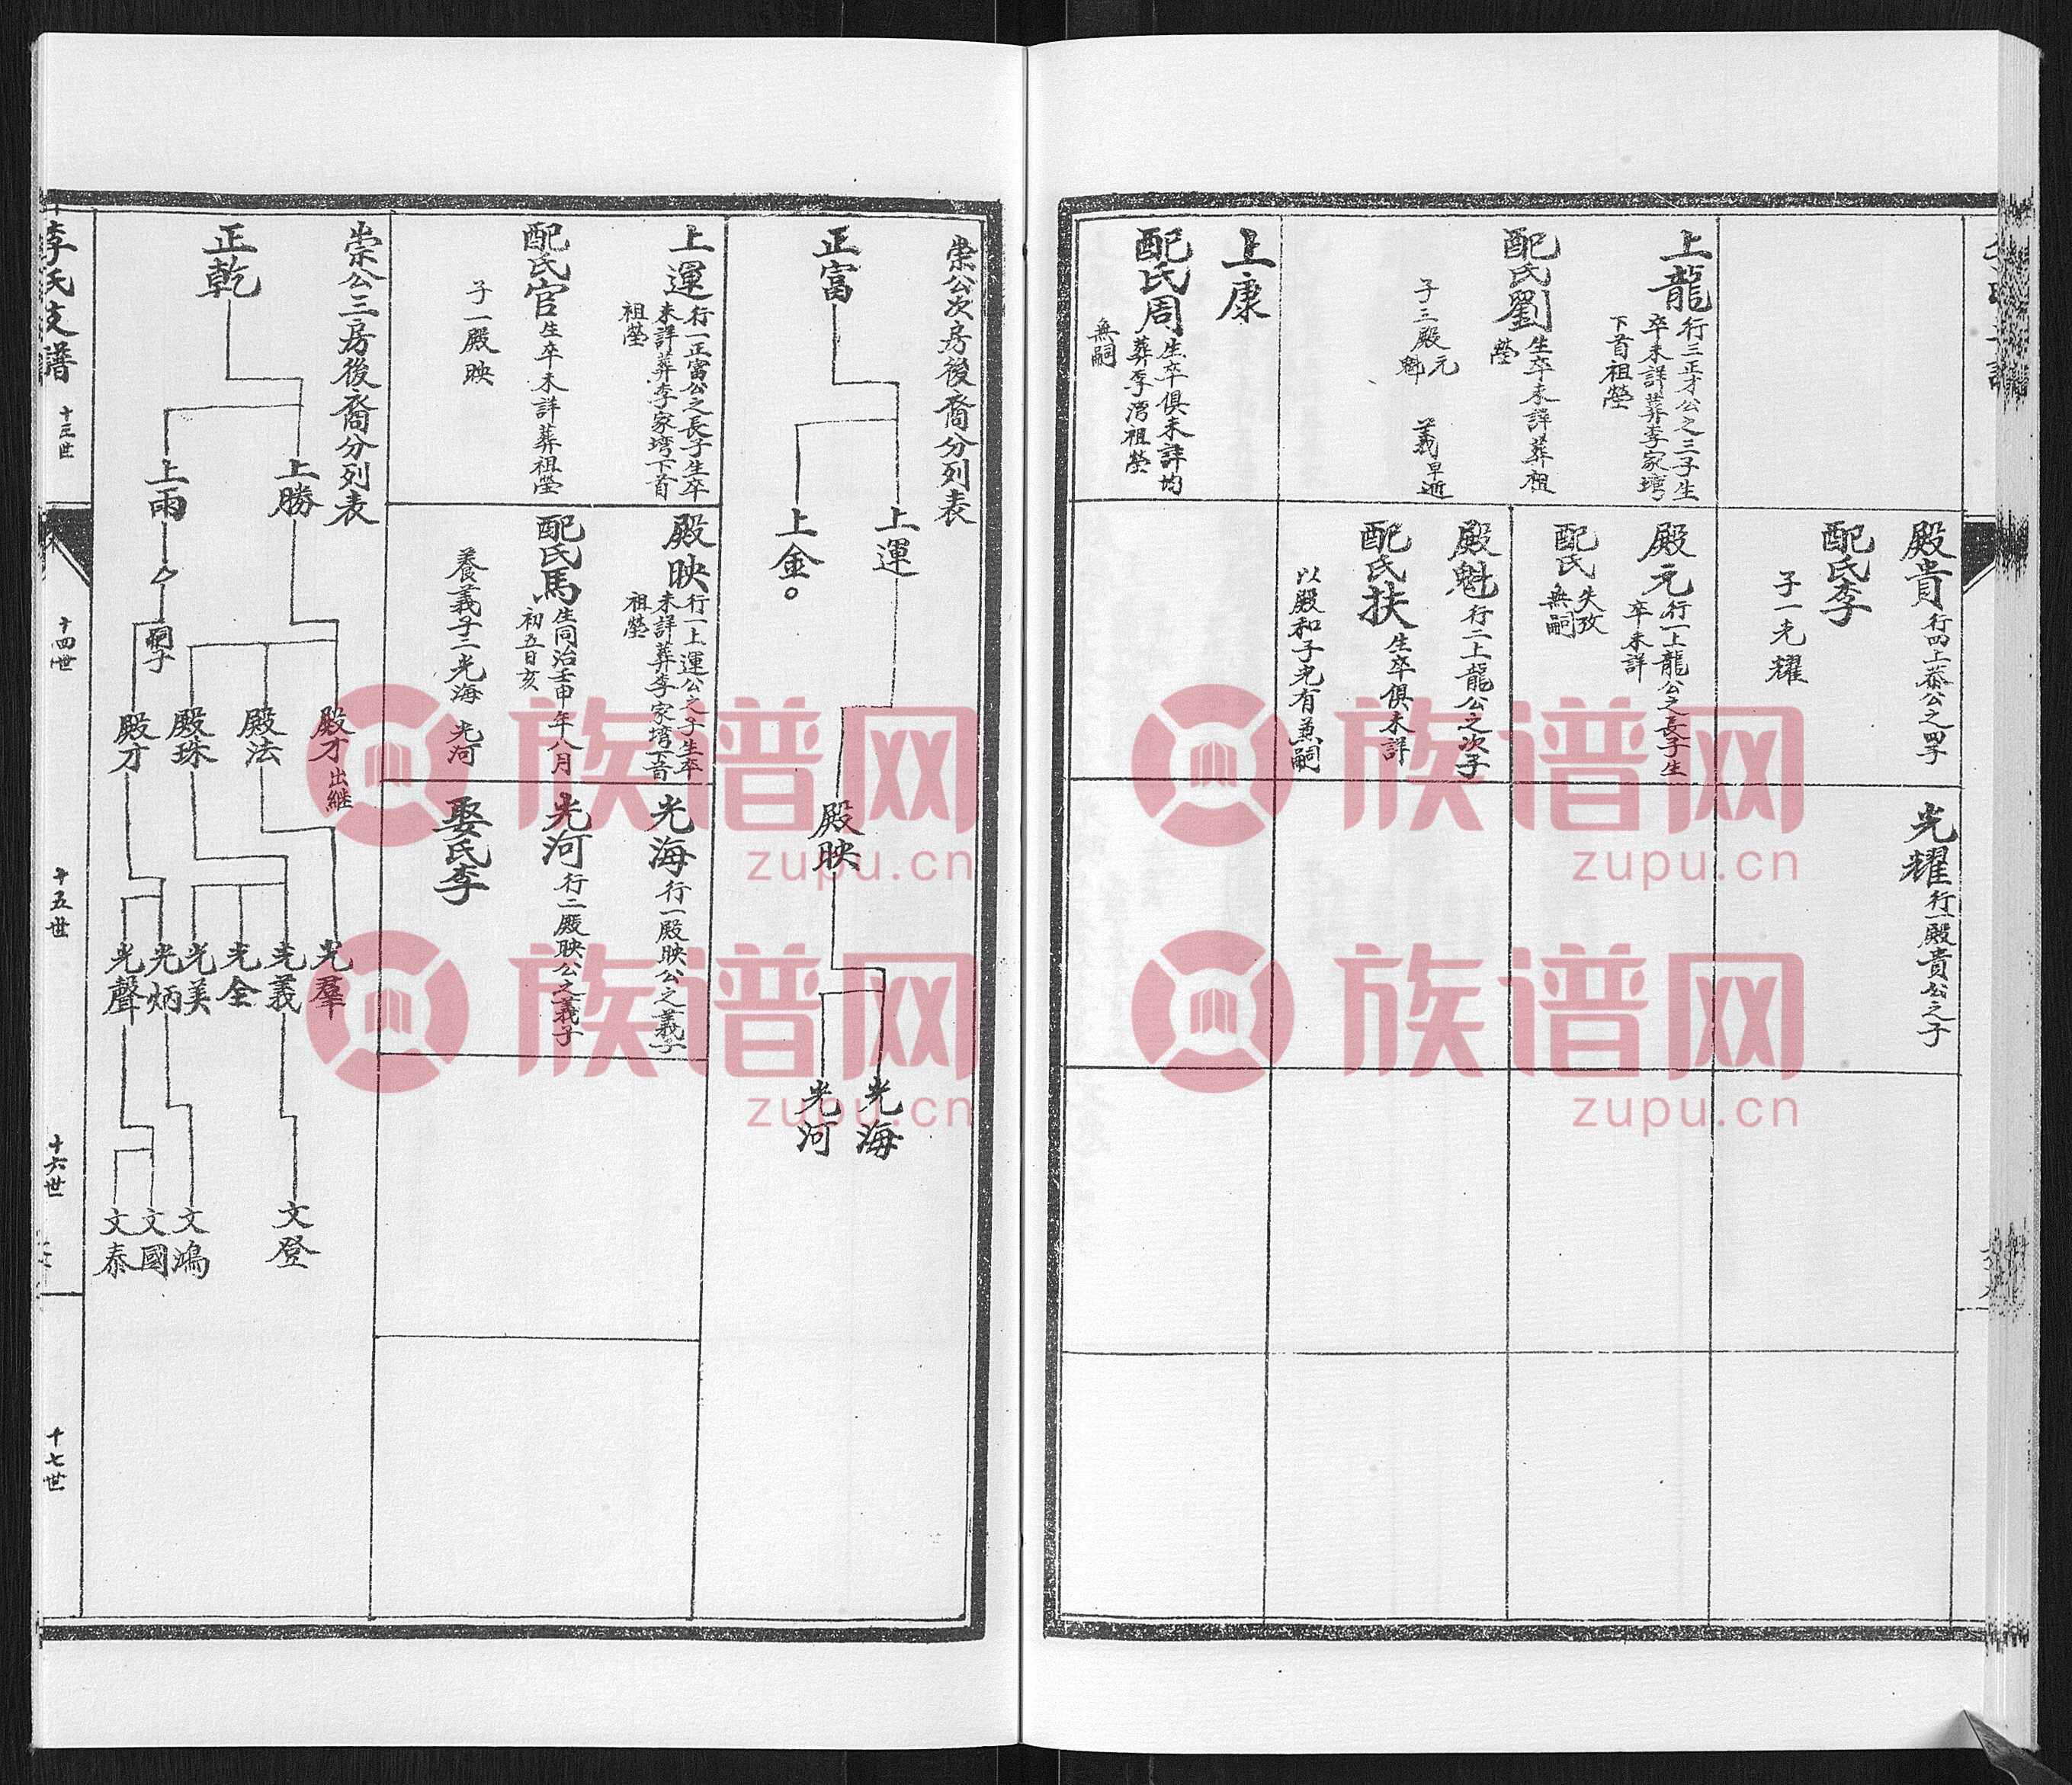 殿貴 行四上蒸公之四子
配氏李
子一光耀
光耀 行一殿貴公之子
上龍 行三正才公之三子生
卒未詳葬李家塆
下首祖塋
配氏劉 生卒未詳葬祖
塋
子三殿元
魁
義早逝
殿元 行一上龍公之長子生
卒未詳
配氏 失攷
無嗣
殿魁 行二上龍公之次子
配氏扶 生卒俱未詳
以殿和子光有兼嗣
上康
配氏周 生卒俱未詳均
葬李灣祖塋
無嗣
崇公次房後裔分列表
正富
上運
上金。
殿映
光海
光河
上運 行一正富公之長子生卒
未詳葬李家塆下首
祖塋
配氏官 生卒未詳葬祖塋
子一殿映
殿映 行一上運公之子生卒
未詳葬李家塆下首
祖塋
配氏馬 生同治壬申年八月
初五日亥
養義子二光海 光河
光海 行一殿映公之義子
光河 行二殿映公之義子
娶氏李
崇公三房後裔分列表
正乾
上勝
上雨
嗣子
殿才 出継
殿法
殿珠
殿才
光羣
光義
光全
光美
光炳
光聲
文登
文鴻
文國
文泰
李氏支譜
十三世
十四世
十五世
十六世
十七世
族谱网
zupu.cn
族谱网
zupu.cn
族谱网
zupu.cn
族谱网
zupu.cn